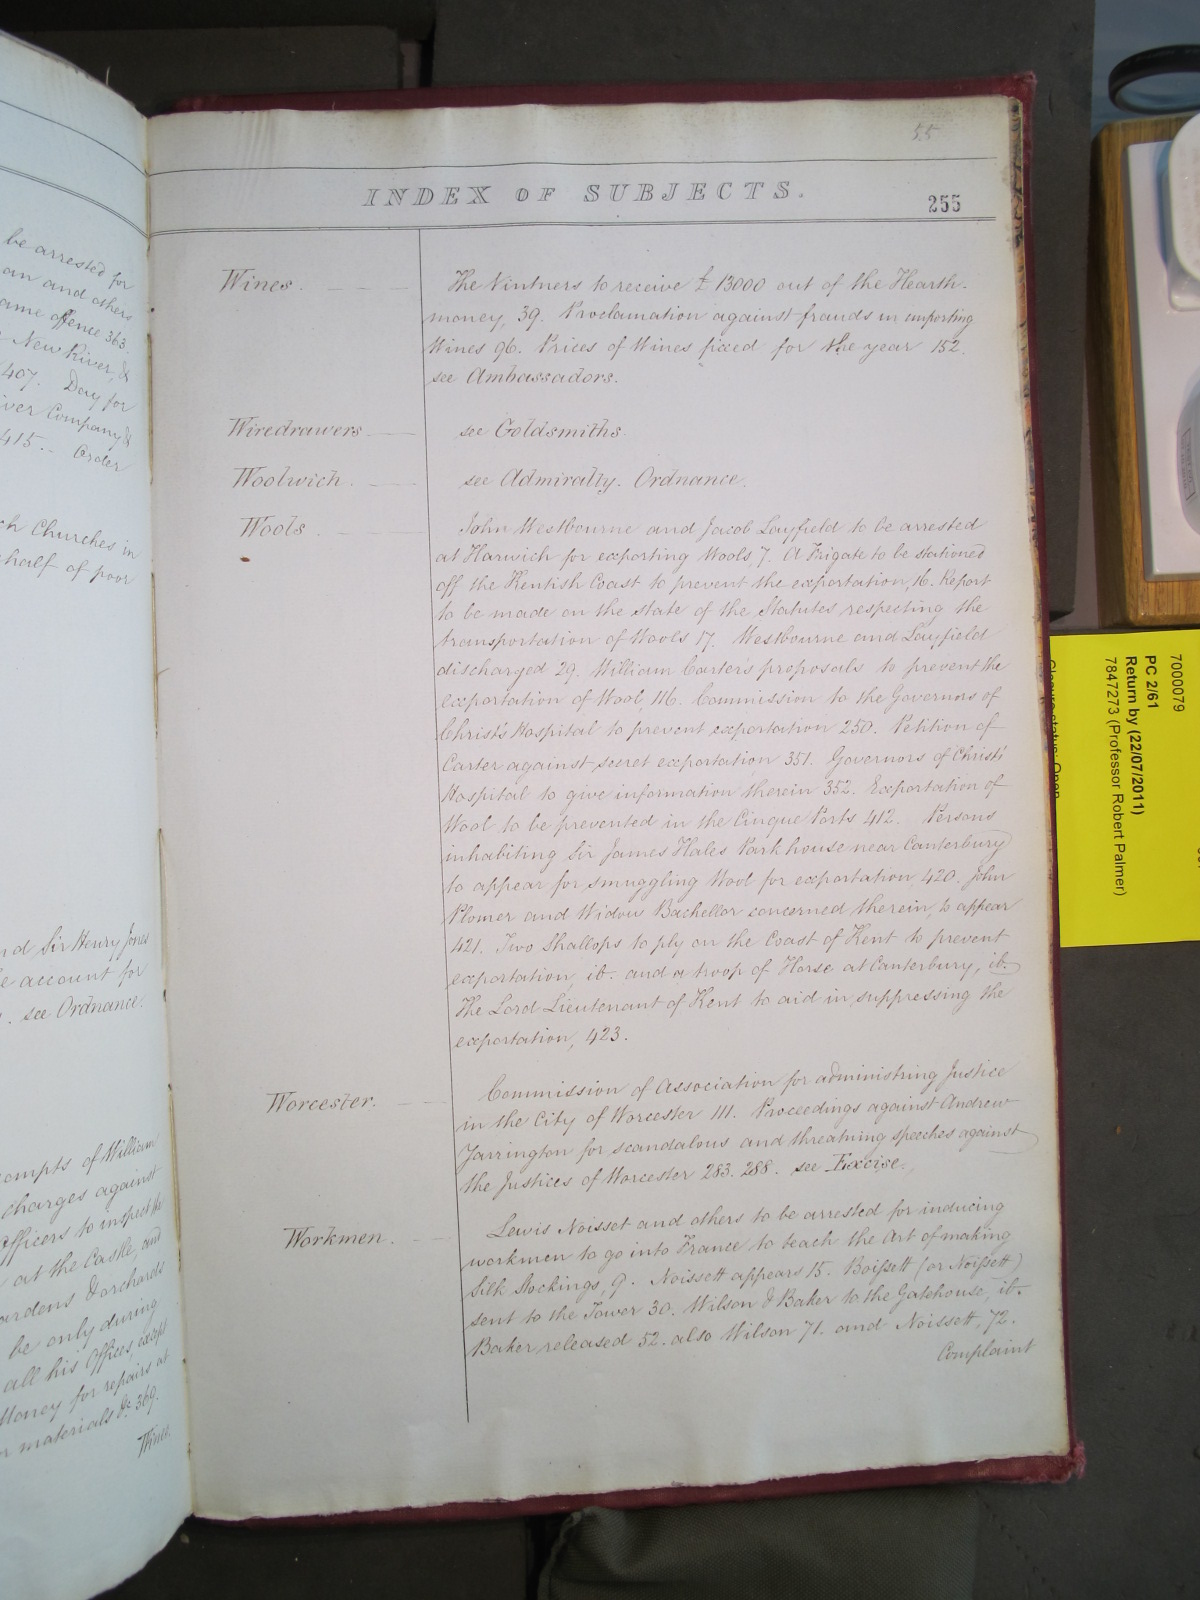 be arrested for
an and others
ame offence 363.
New River, &
407. Day for
iver Company &
415. - Order
ch Churches in
half of poor
nd Sir Henry Jones
e account for
see Ordnance.
ompts of William
charges against
Officers to inspect the
at the Castle, and
ardens & orchards
be only during
all his Offices, except
Money for repairs at
or materials &c 369.
55
INDEX OF SUBJECTS.
255
Wines.
The Vintners to receive £13000 out of the Hearth-
money, 39. Proclamation against frauds in importing
Wines 96. Prices of Wines fixed for the year 152.
see Ambassadors.
Wiredrawers
see Goldsmiths.
Woolwich.
see Admiralty. Ordnance.
Wools
John Westbourne and Jacob Layfield to be arrested
at Harwich for exporting Wools, 7. A Frigate to be stationed
off the Kentish Coast to prevent the exportation, 16. Report
to be made on the state of the Statutes respecting the
transportation of Wools 17. Westbourne and Layfield
discharged 29. William Carter's proposals to prevent the
exportation of Wool, 116. Commission to the Governors of
Christ's Hospital to prevent exportation 250. Petition of
Carter against secret exportation 351. Governors of Christ's
Hospital to give information therein 352. Exportation of
Wool to be prevented in the Cinque Ports 412. Persons
inhabiting Sir James Hales Park house near Canterbury
to appear for smuggling Wool for exportation 420. John
Plomer and Widow Bachellor concerned therein, to appear
421. Two Shallops to ply on the Coast of Kent to prevent
exportation, ib. and a troop of Horse at Canterbury, ib.
The Lord Lieutenant of Kent to aid in suppressing the
exportation, 423.
Worcester.
Commission of Association for administring Justice
in the City of Worcester 111. Proceedings against Andrew
Yarrington for scandalous and threatning speeches against
the Justices of Worcester 283. 288. see Excise.
Workmen.
Lewis Noisset and others to be arrested for inducing
workmen to go into France to teach the Art of making
Silk Stockings, 9. Noissett appears 15. Boissett (or Noissett)
sent to the Tower 30. Wilson & Baker to the Gatehouse, ib.
Baker released 52. also Wilson 71. and Noissett, 72.
Complaint
7000079
PC 2/61
Return by (22/07/2011)
7847273 (Professor Robert Palmer)
Closure status: Open